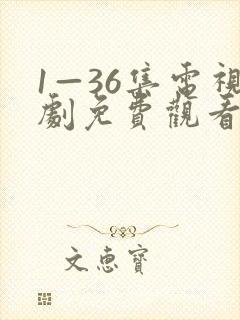 1—36集電視
劇免費觀看
文惠寶